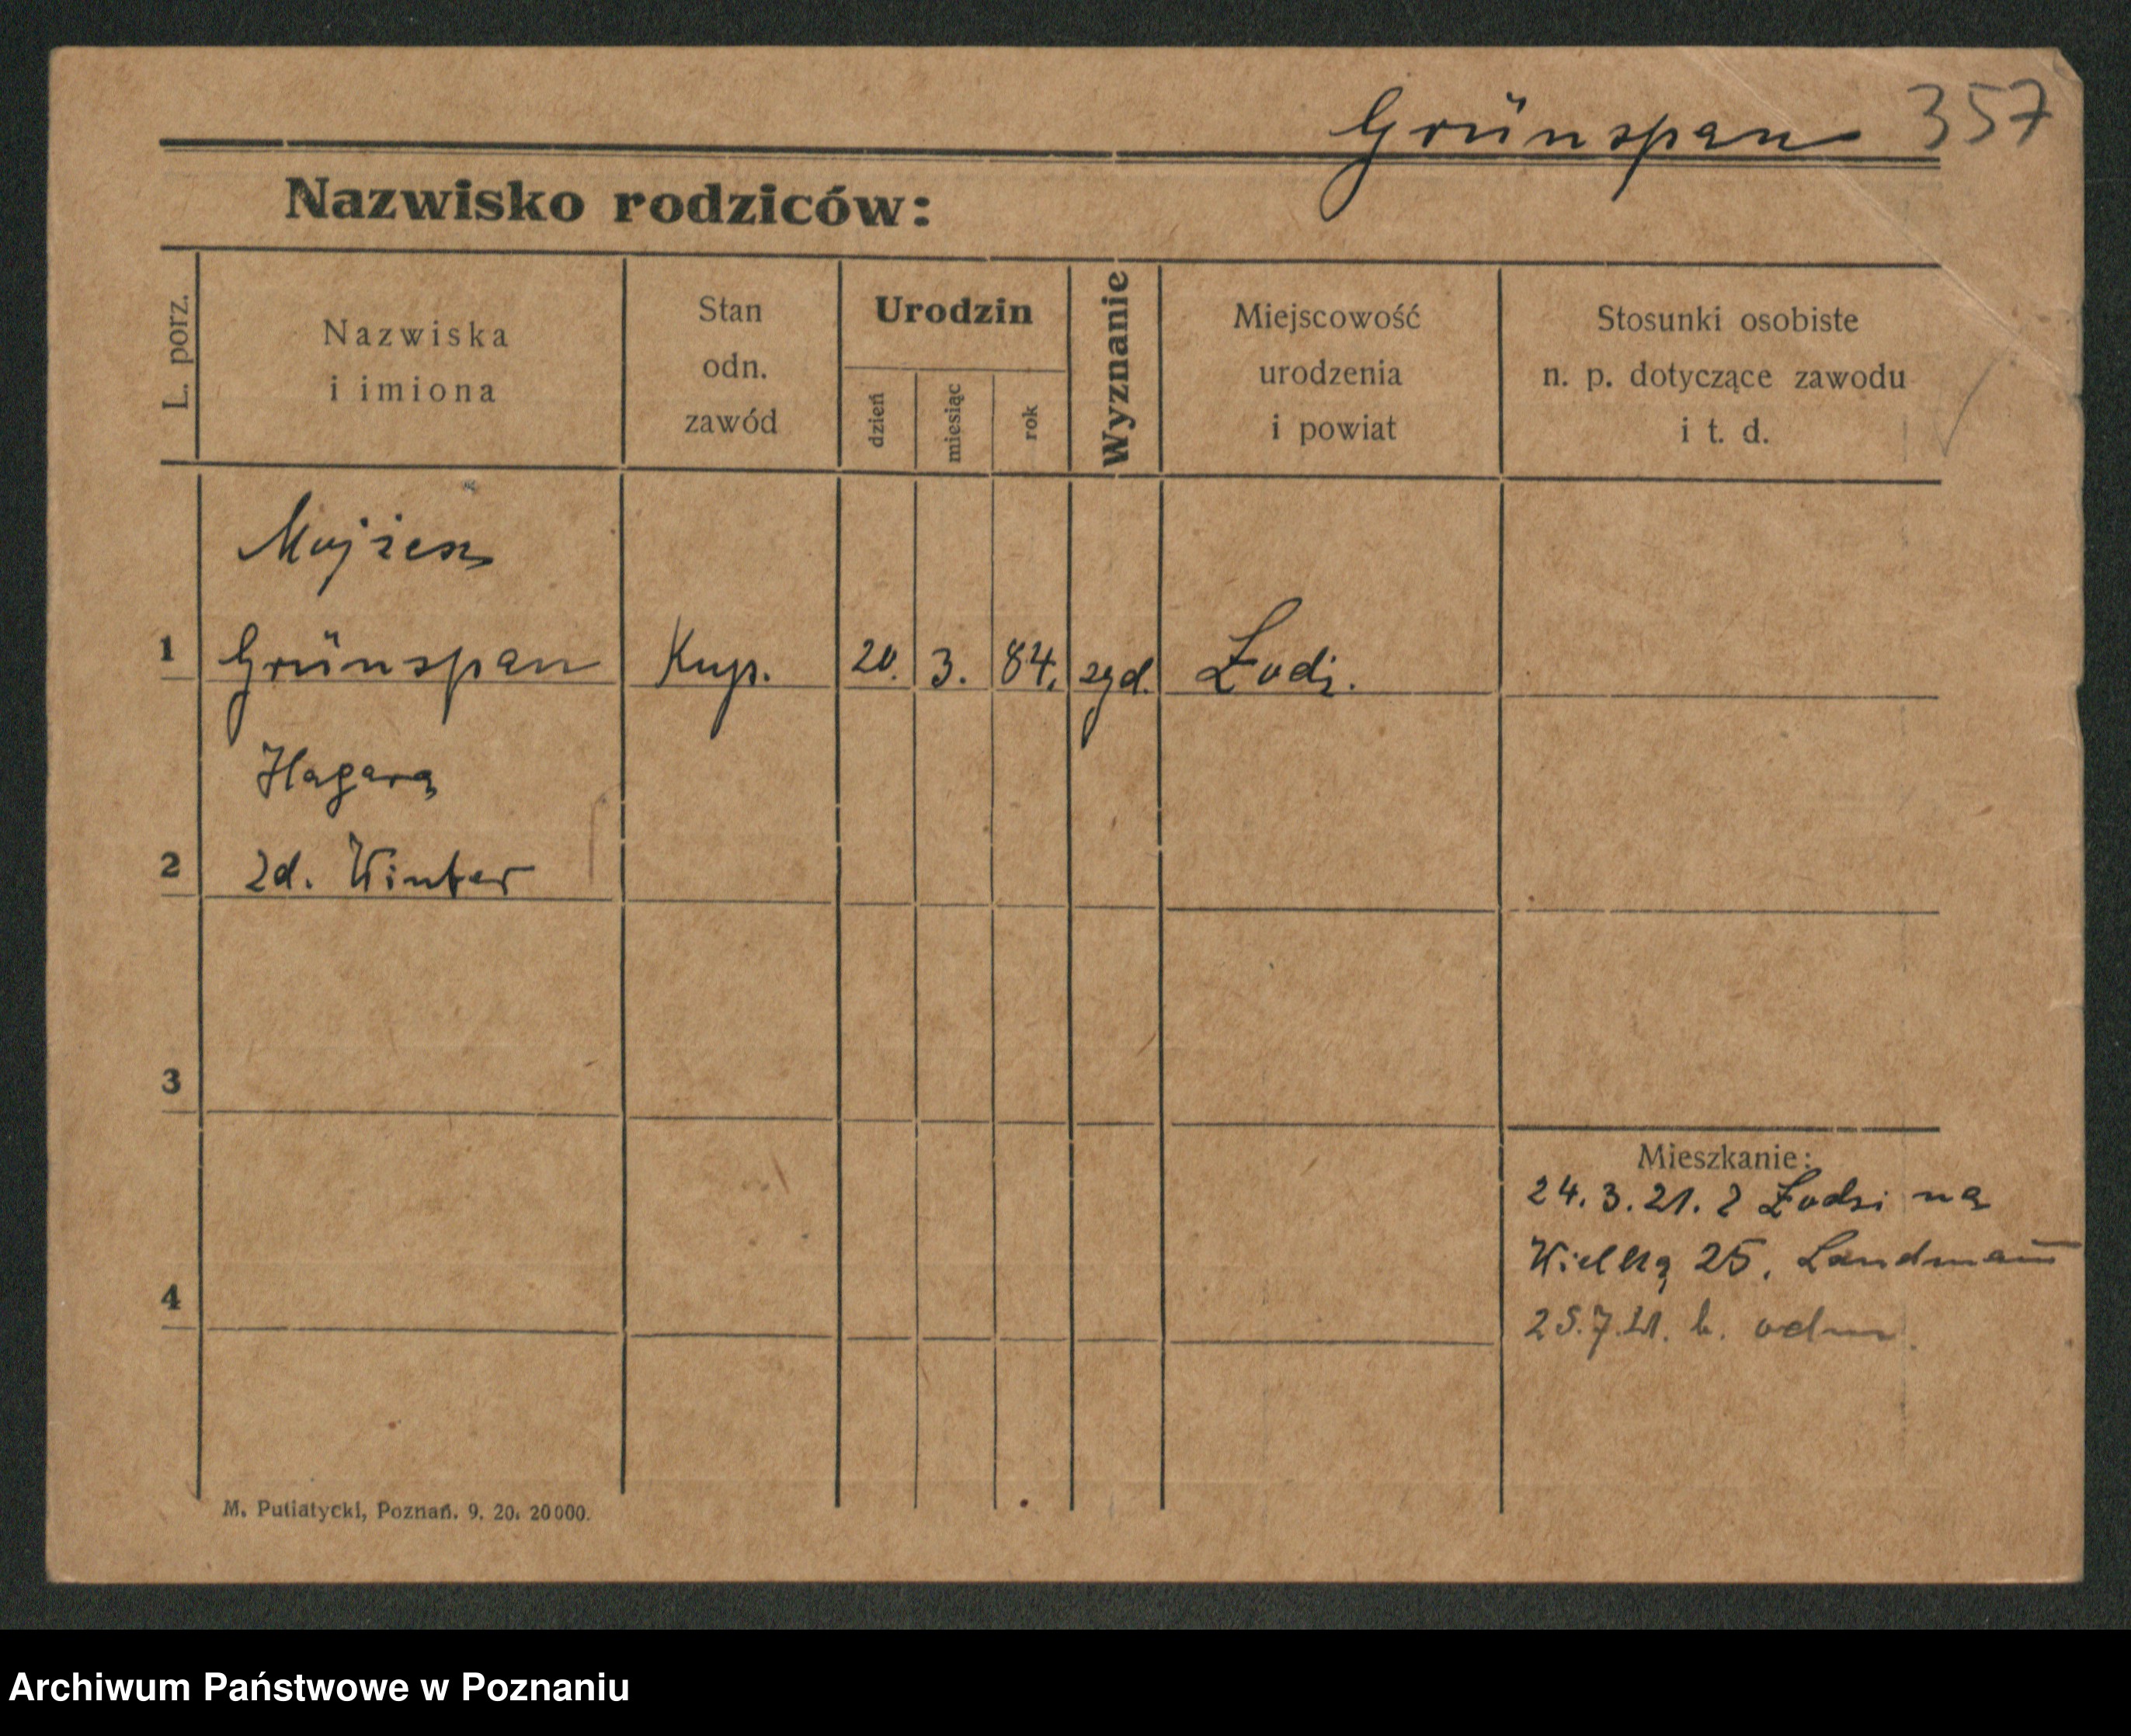 Grünspan 357
Nazwisko rodziców:
L. porz.
Nazwiska
i imiona
Stan
odn.
zawód
Urodzin
dzień
miesiąc
rok
Wyznanie
Miejscowość
urodzenia
i powiat
Stosunki osobiste
n. p. dotyczące zawodu
i t. d.
Mojżesz
1 Grünspan Kup. 20. 3. 84. Łodz.
Hagara
2 zd. Winter
3
Mieszkanie:
24.3.21. z Łodzi na
Wielką 25. Landman̄
4
25.7.21. b. odm
M. Putiatycki, Poznań. 9. 20. 20000.
Archiwum Państwowe w Poznaniu